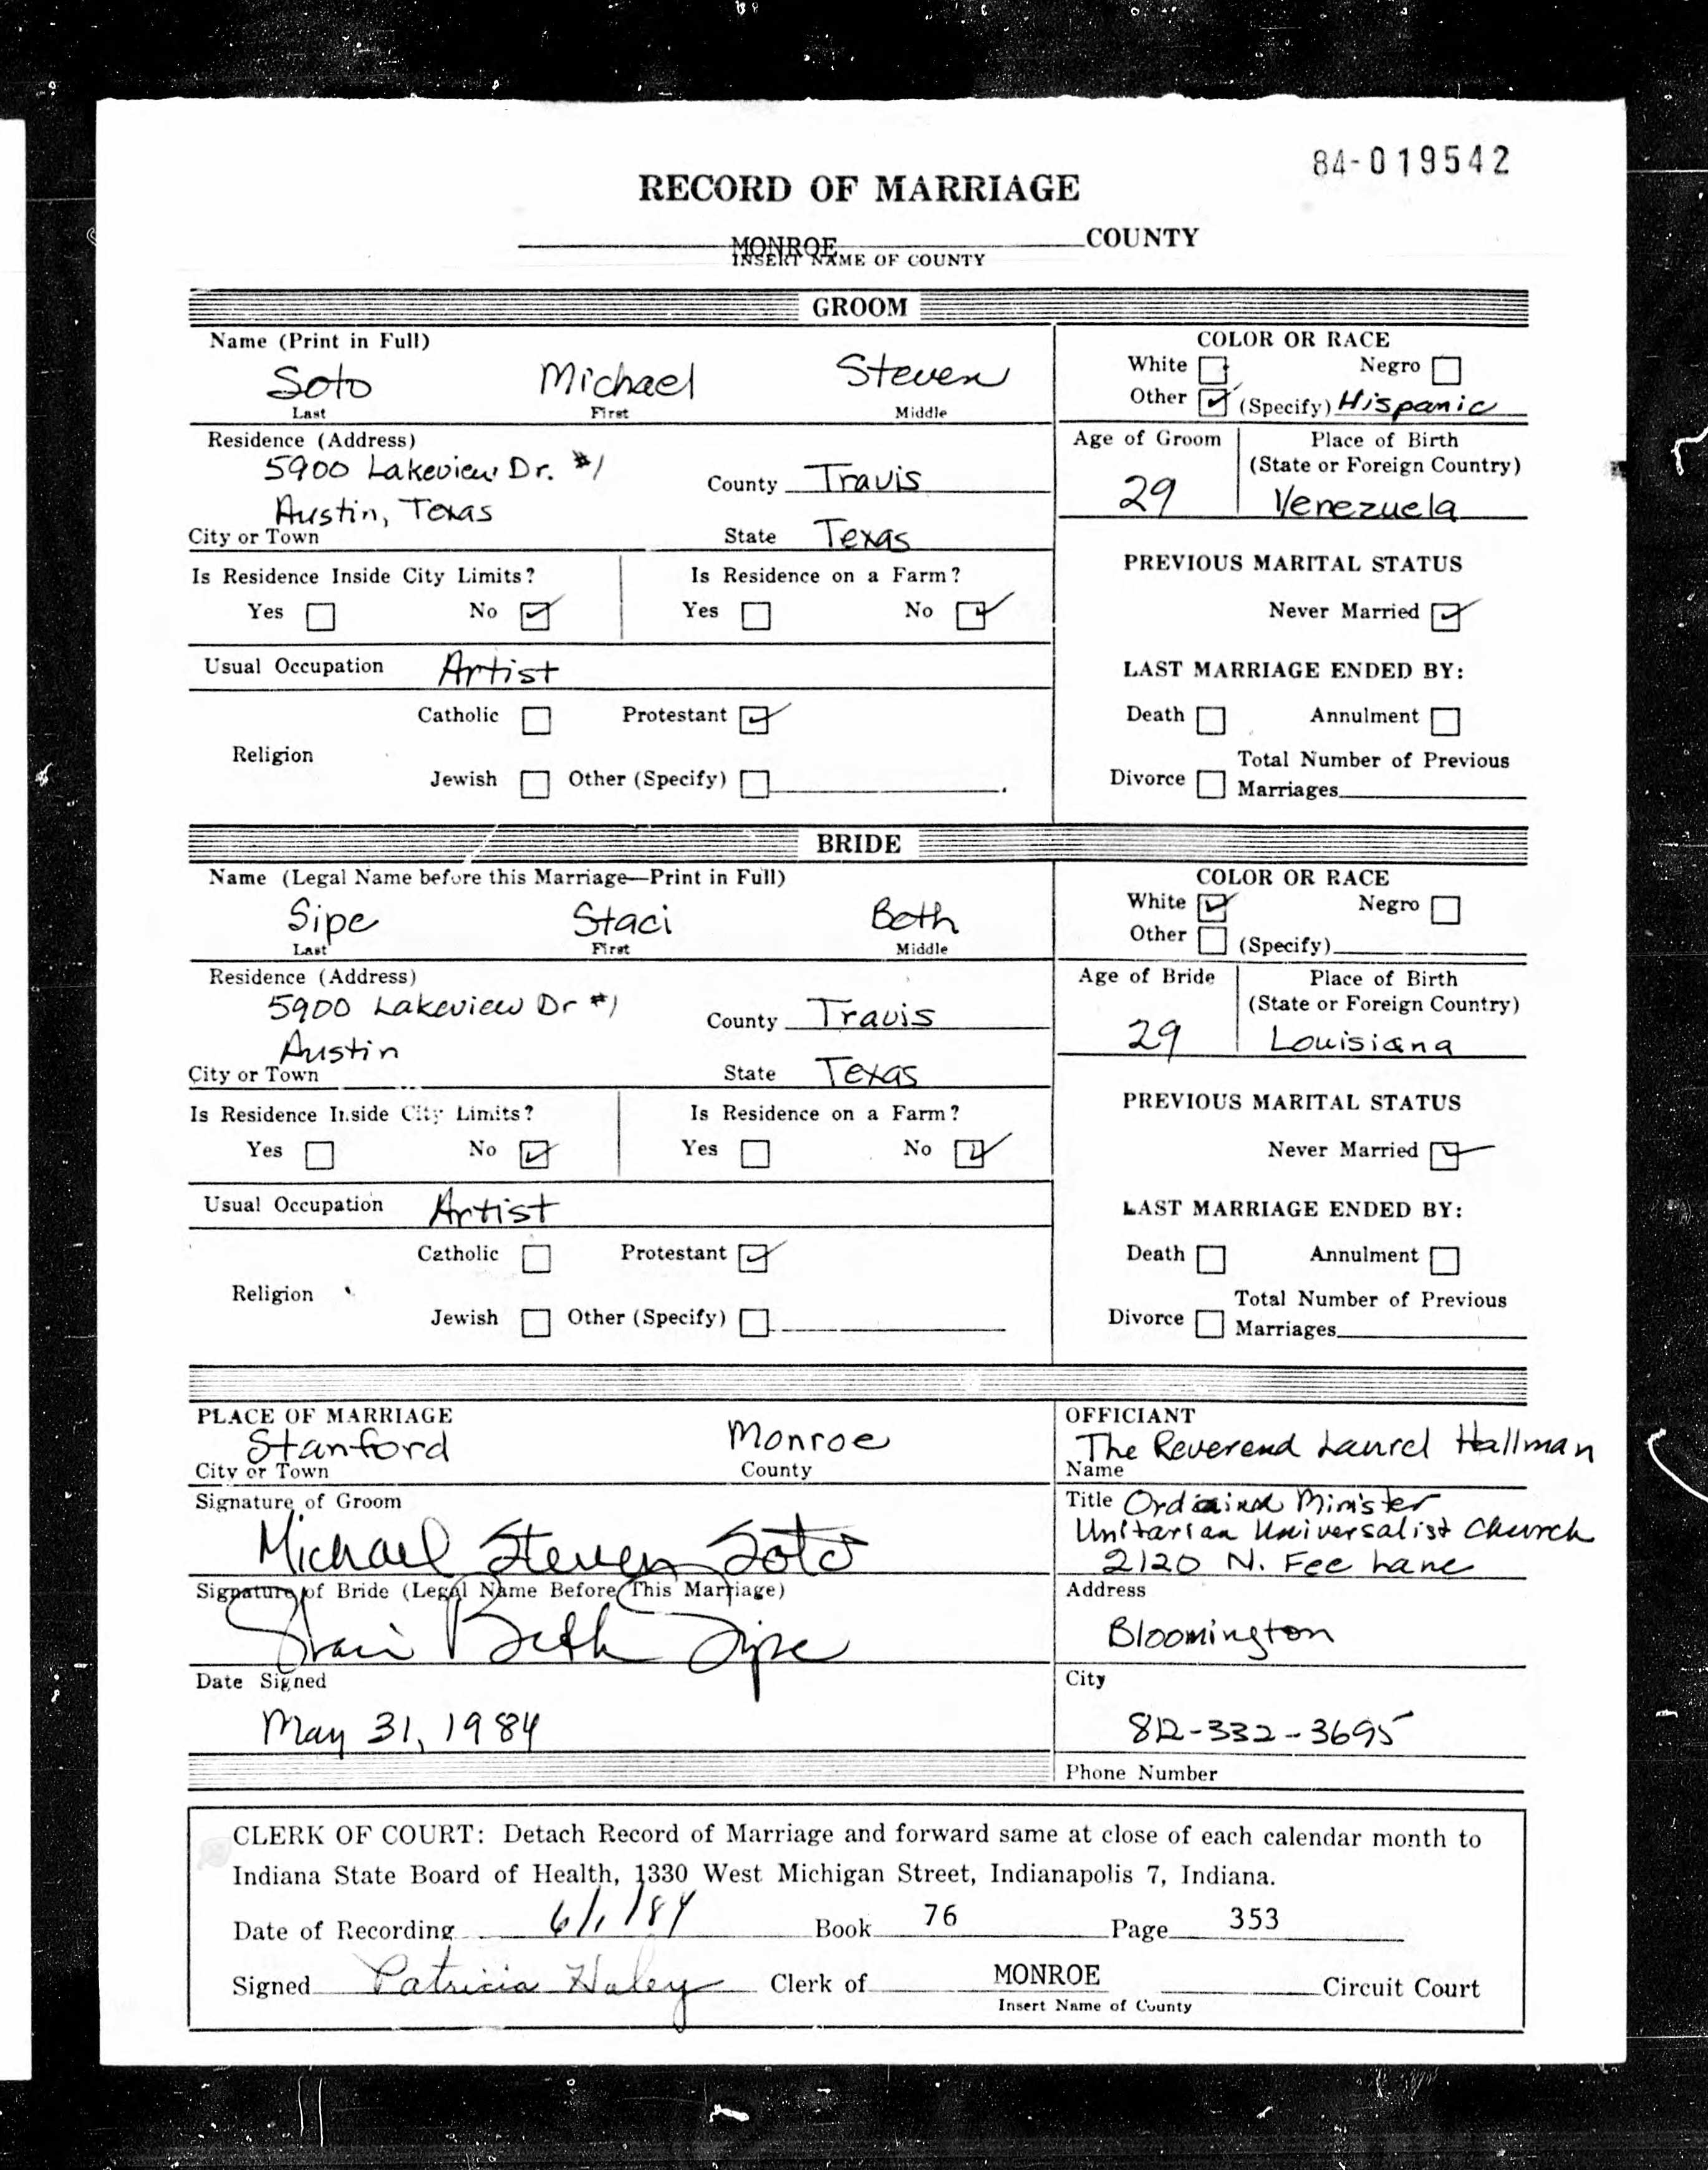 84-019542
RECORD OF MARRIAGE
MONROE COUNTY
INSERT NAME OF COUNTY
GROOM
Name (Print in Full)
Soto Michael Steven
Last First Middle
COLOR OR RACE
White Negro
Other (Specify) Hispanic
Residence (Address)
5900 Lakeview Dr. #1
Austin, Texas
City or Town
County Travis
State Texas
Age of Groom
29
Place of Birth
(State or Foreign Country)
Venezuela
Is Residence Inside City Limits?
Yes No ✓
Is Residence on a Farm?
Yes No ✓
PREVIOUS MARITAL STATUS
Never Married ✓
Usual Occupation Artist
LAST MARRIAGE ENDED BY:
Catholic Protestant ✓
Religion
Jewish Other (Specify)
Death Annulment
Divorce Total Number of Previous
Marriages
BRIDE
Name (Legal Name before this Marriage—Print in Full)
Sipe Staci Beth
Last First Middle
COLOR OR RACE
White ✓ Negro
Other (Specify)
Residence (Address)
5900 Lakeview Dr #1
Austin
City or Town
County Travis
State Texas
Age of Bride
29
Place of Birth
(State or Foreign Country)
Louisiana
Is Residence Inside City Limits?
Yes No ✓
Is Residence on a Farm?
Yes No ✓
PREVIOUS MARITAL STATUS
Never Married ✓
Usual Occupation Artist
LAST MARRIAGE ENDED BY:
Catholic Protestant ✓
Religion
Jewish Other (Specify)
Death Annulment
Divorce Total Number of Previous
Marriages
PLACE OF MARRIAGE
Stanford Monroe
City or Town County
Signature of Groom
Michael Steven Soto
Signature of Bride (Legal Name Before This Marriage)
Staci Beth Sipe
Date Signed
May 31, 1984
OFFICIANT
The Reverend Laurel Hallman
Name
Title Ordained Minister
Unitarian Universalist Church
2120 N. Fee Lane
Address
Bloomington
City
812-332-3695
Phone Number
CLERK OF COURT: Detach Record of Marriage and forward same at close of each calendar month to
Indiana State Board of Health, 1330 West Michigan Street, Indianapolis 7, Indiana.
Date of Recording 6/1/84 Book 76 Page 353
Signed Patricia Haley Clerk of MONROE Circuit Court
Insert Name of County